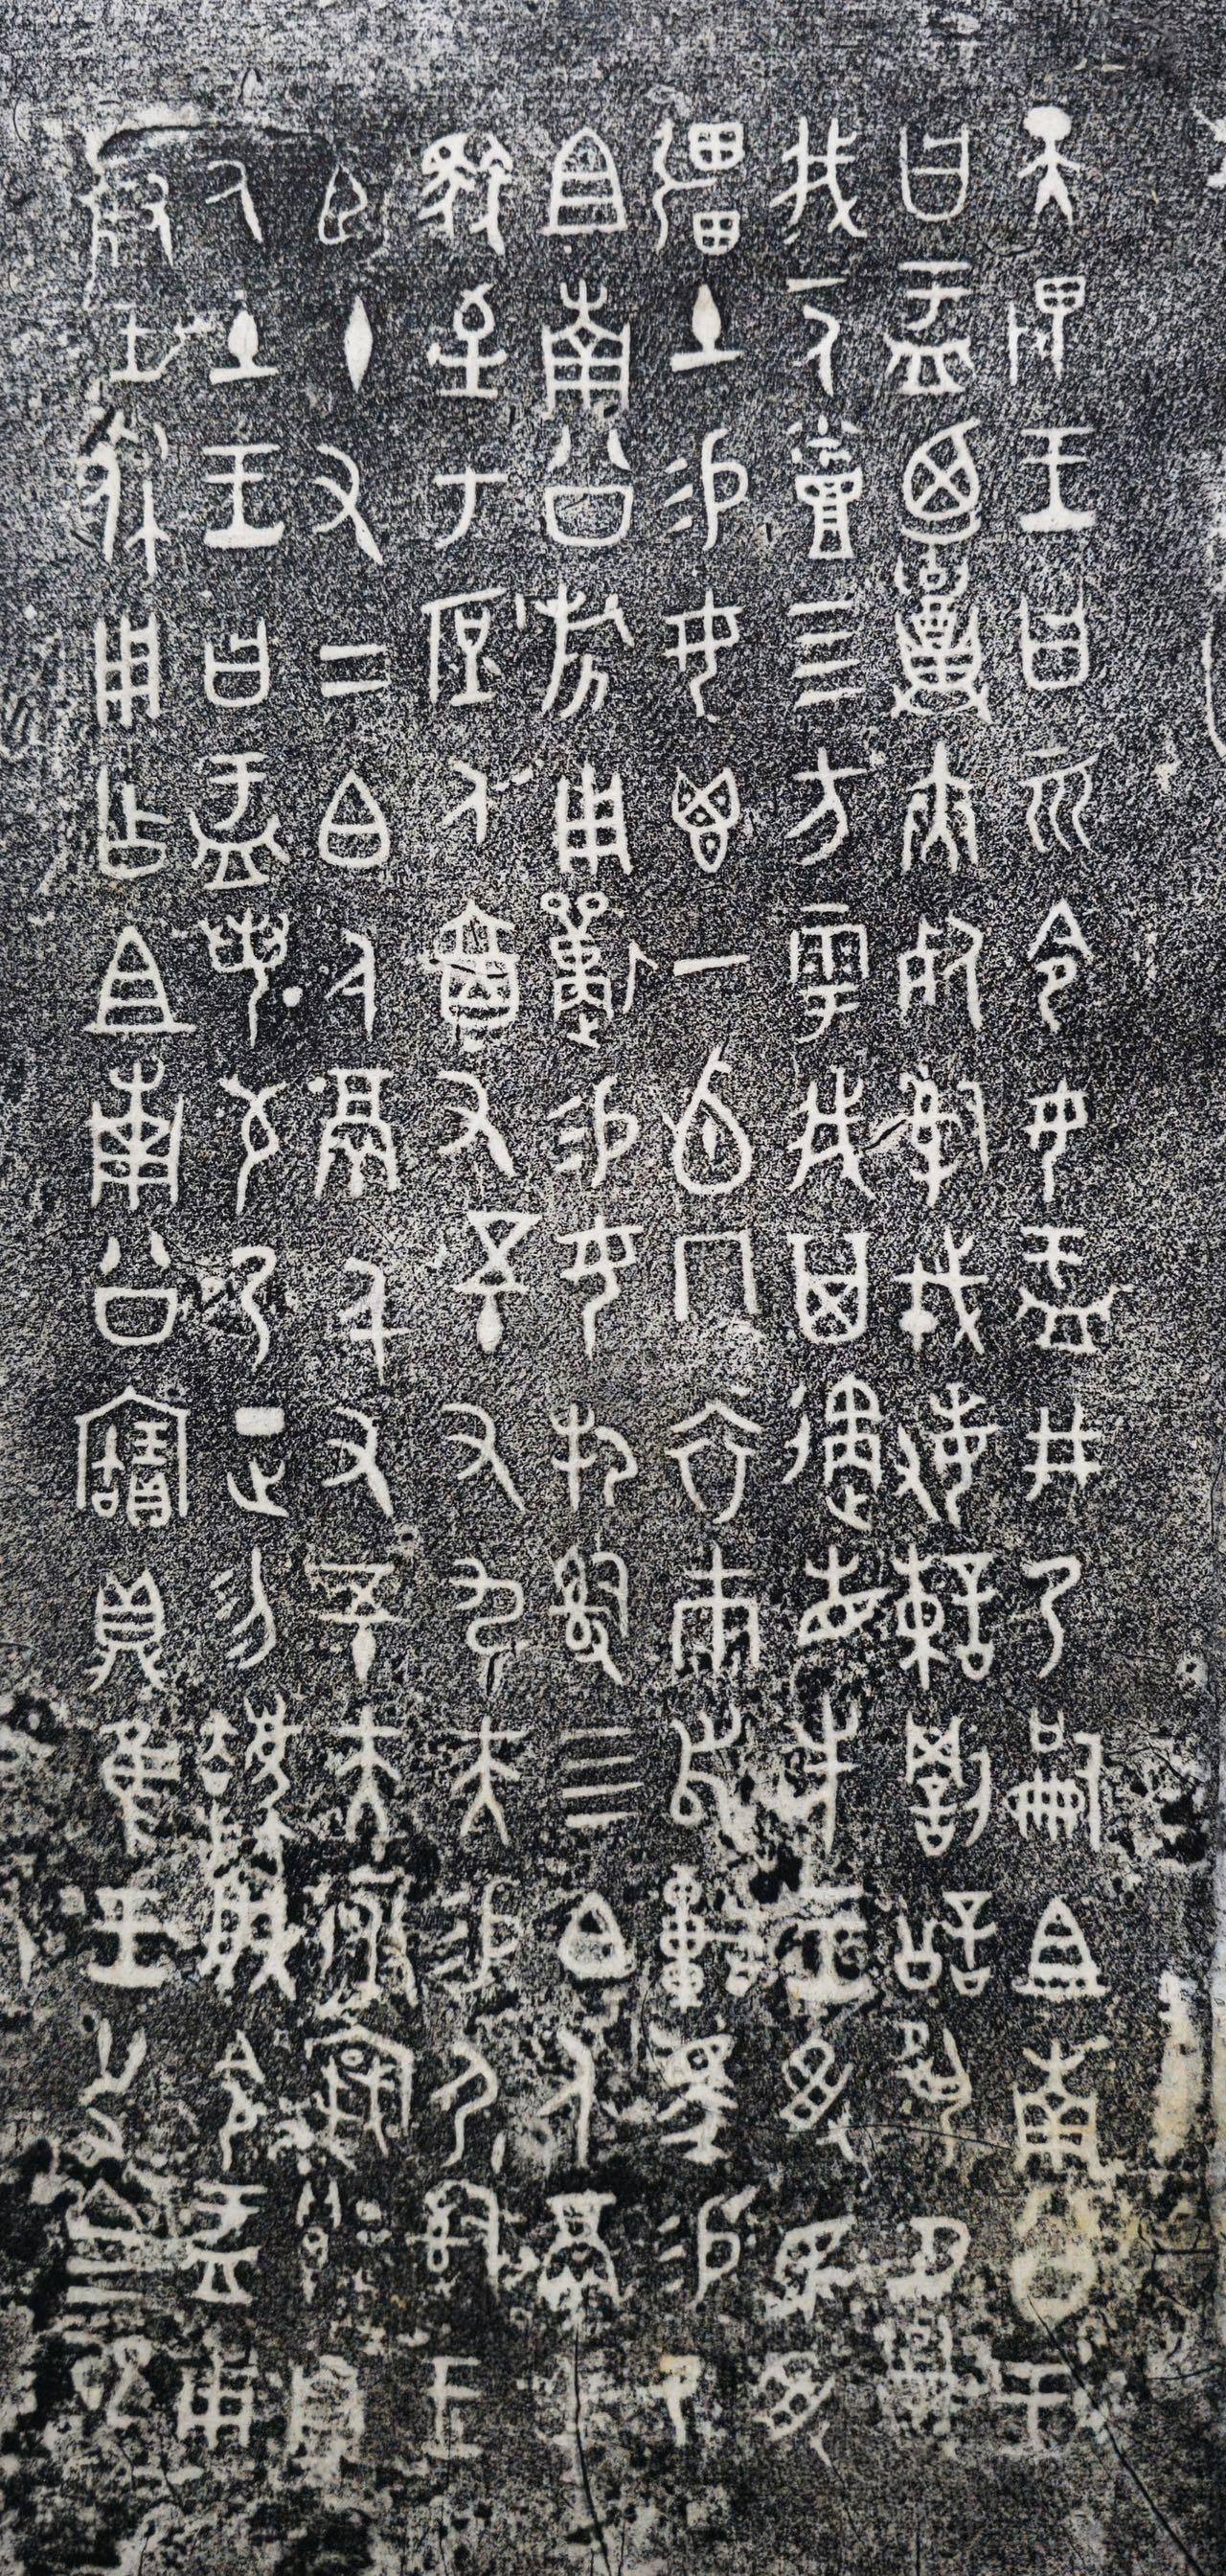 天畏王曰而令女盂井乃嗣且南公王
曰盂廼召夾死𤔲戎敏諫罰訟夙夕召
我一人烝四方雩我其遹省先王受民受
疆土易女鬯一卣冂衣巿舄車馬易乃
且南公旂用狩易女邦𤔲四白人鬲自
馭至于庶人六百又五十又九夫易尸𤔲王
臣十又三白人鬲千又五十夫
厥土王曰盂若敬乃正勿灋朕令盂用
對王休用乍且南公寶鼎隹王廿又三祀